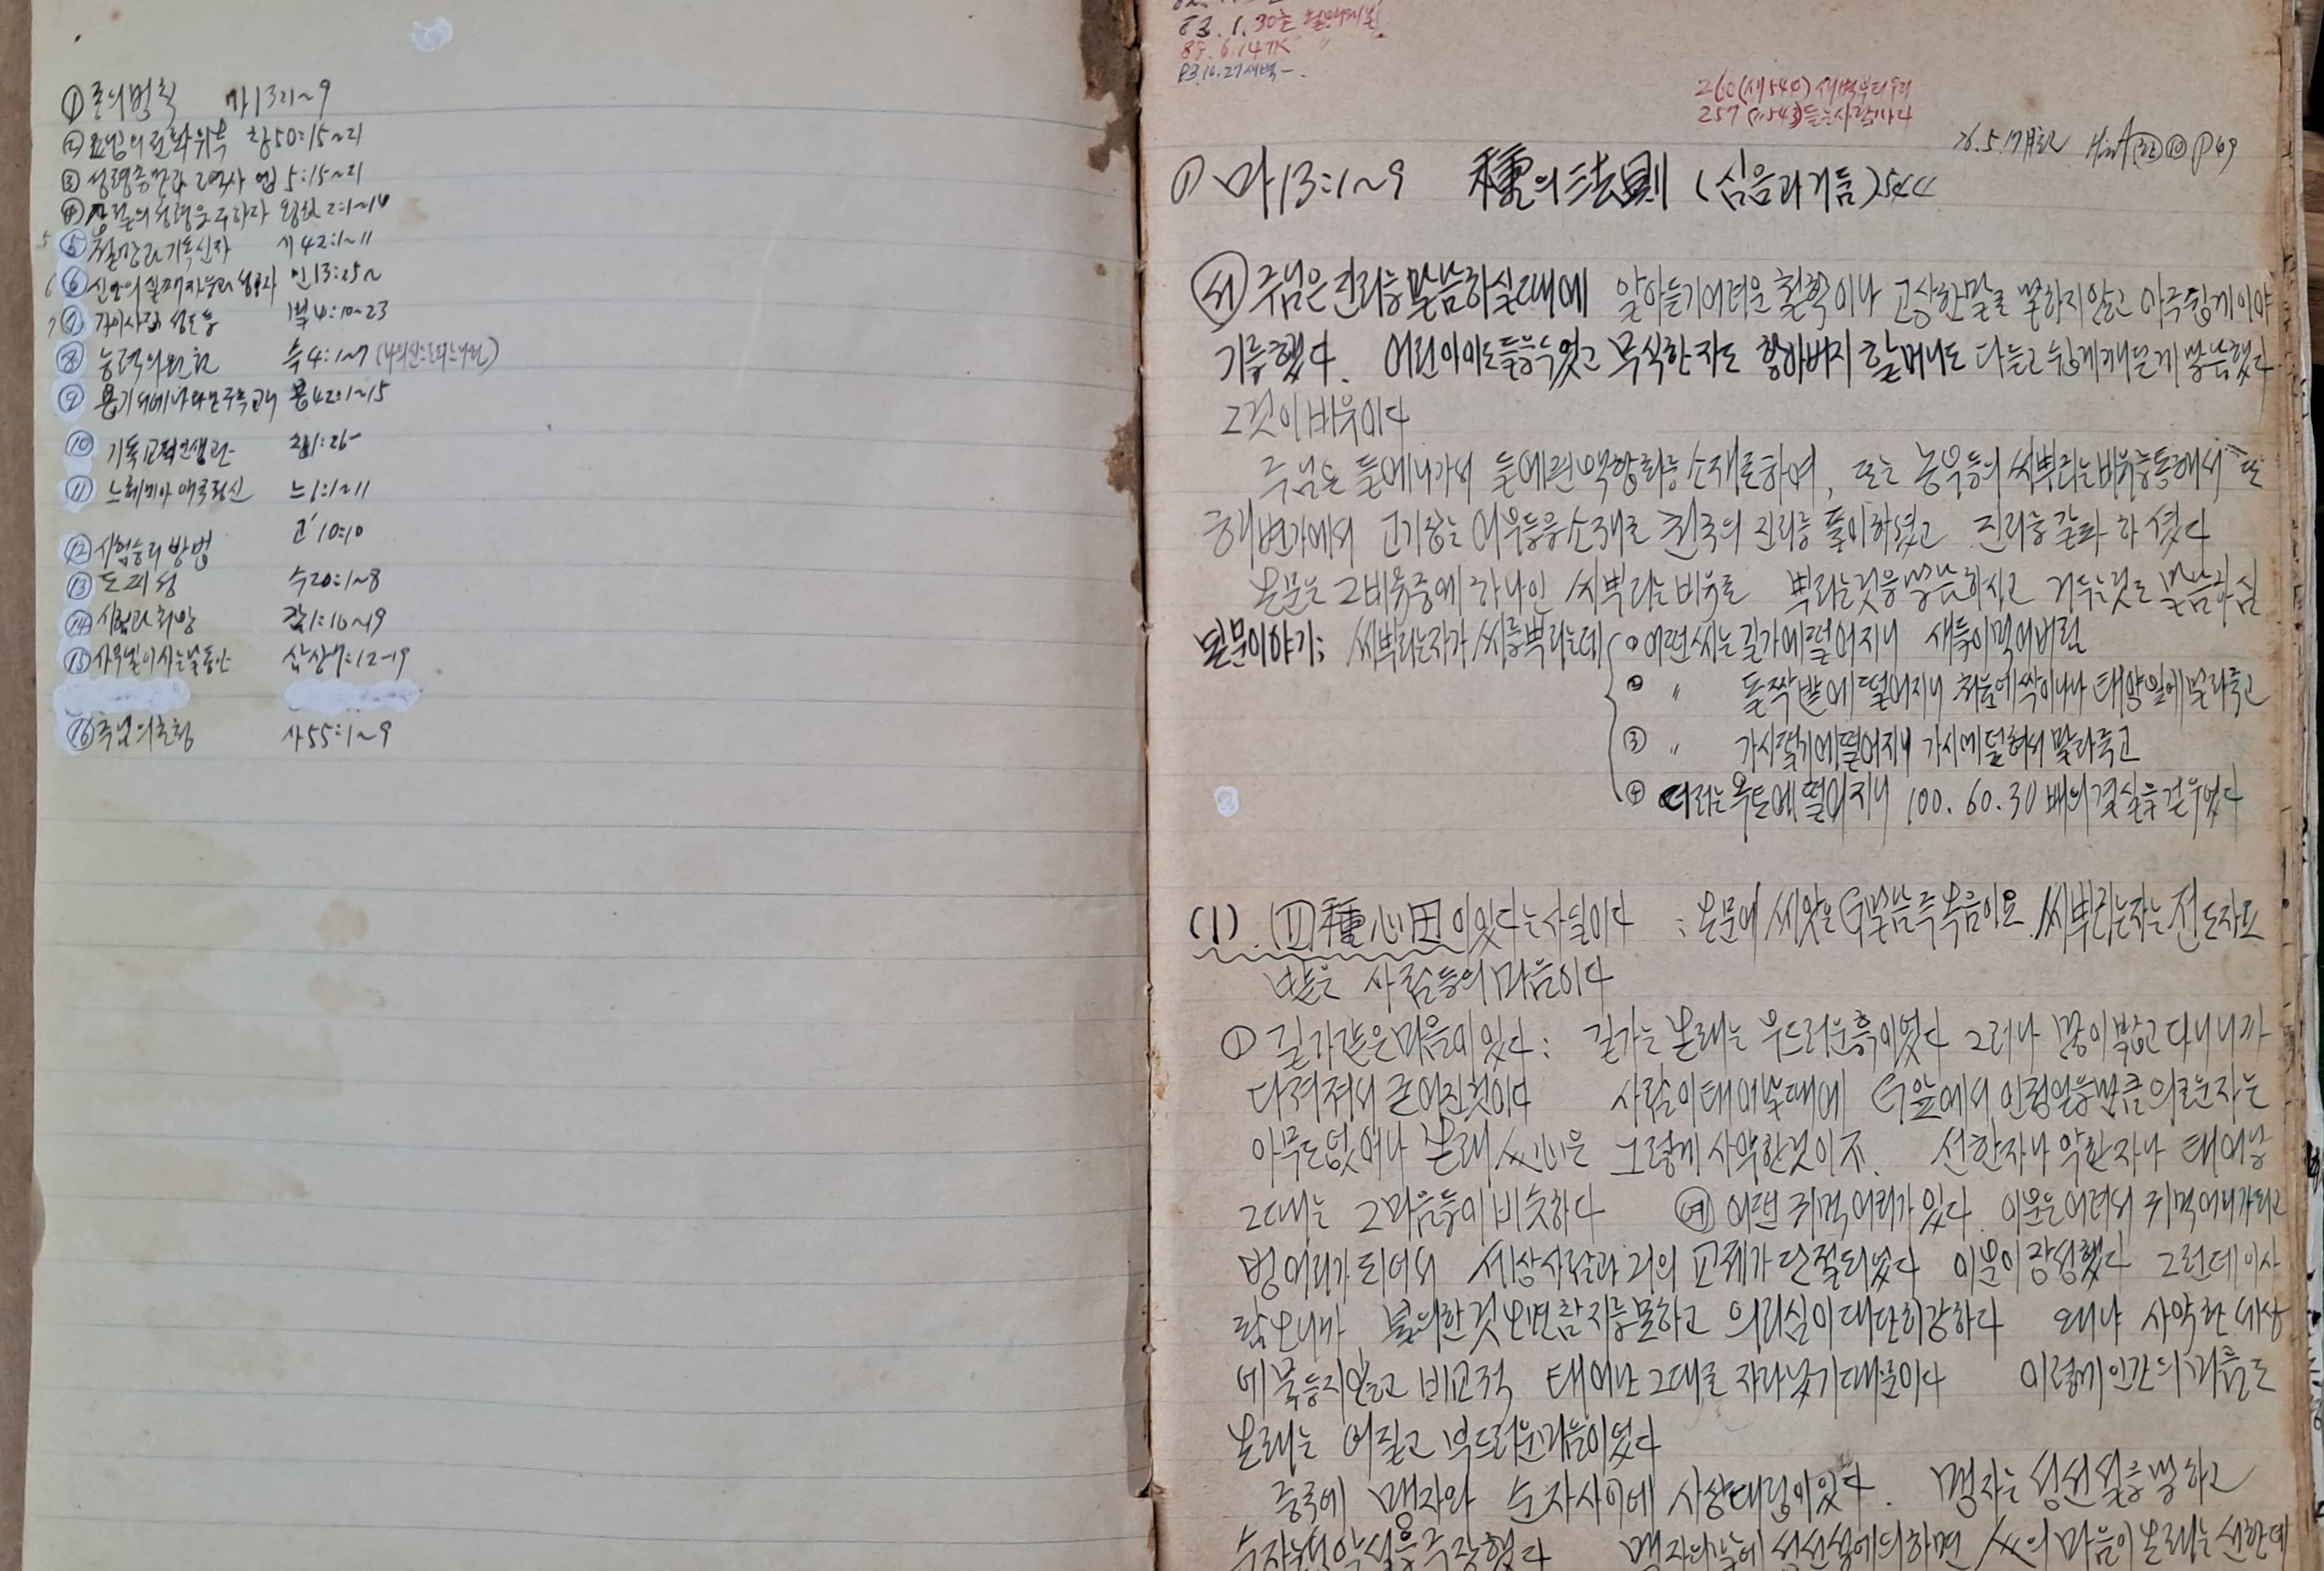 ① 종의법칙 마13:1~9
② 요셉의 전화위복 창50:15~21
③ 성령충만과 역사 엡 5:15~21
④ 갑절의 성령을 구하라 왕하 2:1~14
5 ⑤ 절망과 기독신자 시 42:1~11
6 ⑥ 신앙의 실패자들과 성공자 민13:25~
7 ⑦ 가이사집 성도들 빌4:10~23
⑧ 능력의 원천 슥4:1~7
⑨ 욥기 욥42:1~15
⑩ 기독교적인생관 창1:26~
⑪ 느헤미야 애국정신 느1:1~11
⑫ 시험승리 방법 고 10:10
⑬ 도피성 수20:1~8
⑭ 시험과 희망 잠1:10~19
⑮ 사무엘이 사는날동안 삼상7:12~19
⑯ 주님의초청 사55:1~9
83.1.30
88.6.14
83.10.27새벽
260(새540)
257
① 마13:1~9 種의法則 (심음과거둠)
㊂ 주님은 진리를 말씀하실때에 알아듣기어려운 철학이나 고상한말로 말하지않고 아주쉽게이야
기를했다. 어린아이도들을수있고 무식한자도 할아버지 할머니도 다듣고쉽게깨닫게말씀했다
그것이비유이다
주님은 들에나가서 들에핀백합화를소재로하여, 또는 농부들의씨뿌리는비유를통해서 또
해변가에서 고기잡는 어부들을소재로 천국의 진리를 풀이하셨고 진리를갈파 하셨다
본문은 그비유중에 하나인 씨뿌리는비유로 뿌리는것을말씀하시고 거두는것도 말씀하심
본문이야기; 씨뿌리는자가 씨를뿌리는데 ① 어떤씨는길가에떨어지니 새들이먹어버림
② 〃 돌짝밭에떨어지니 처음에싹이나나 태양열에말라죽고
③ 〃 가시떨기에떨어지니 가시에덮혀서 말라죽고
④ 더러는옥토에떨어지니 100. 60. 30배의결실을걷우었다
(1). 四種心田이있다는사실이다 : 본문에 씨앗은 G말씀즉복음이요 씨뿌리는자는 전도자요
밭은 사람들의마음이다
① 길가같은마음이있다: 길가는본래는 부드러운흙이었다 그러나 많이밟고다니니까
다져져서 굳어진것이다 사람이태어날때에 G앞에서 인정얻을만큼의로운자는
아무도없으나 본래 人心은 그렇게사악한것이不. 선한자나 악한자나 태어날
그때는 그마음들이비슷하다 ㊀ 어떤 귀먹어리가있다 이분은어려서 귀먹어리가되고
벙어리가되어서 세상사람과거의 교제가단절되었다 이분이장성했다 그런데이사
람보니까 불의한것보면참지를못하고 의리심이대단히강하다 왜냐 사악한세상
에물들지않고 비교적 태어난그대로 자라났기때문이다 이렇게인간의마음도
본래는 어질고 부드러운마음이었다
중국에 맹자와 순자사이에 사상대립이있다. 맹자는 성선설을말하고
순자는성악설을주장했다 맹자의말에 성선설에의하면 人의마음이본래는선한데